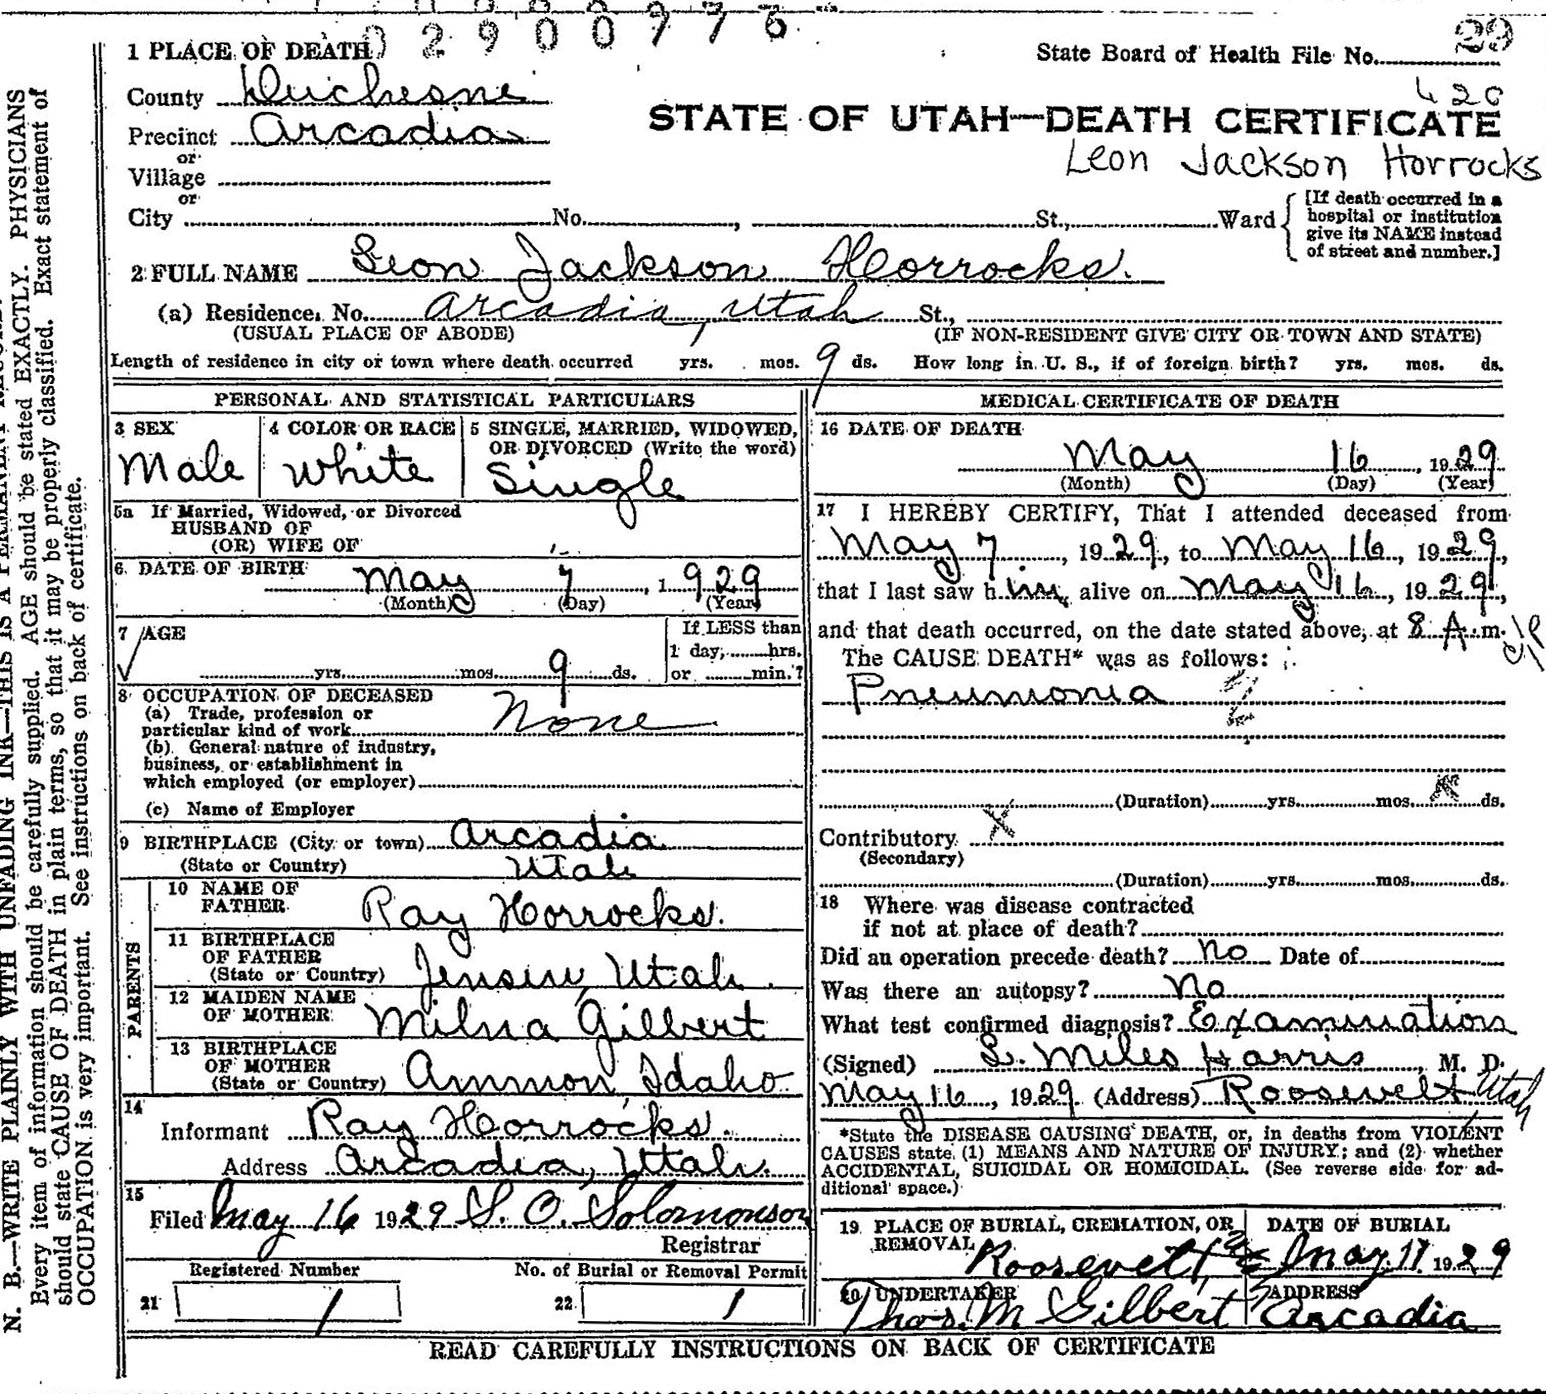 0290097 6
1 PLACE OF DEATH
State Board of Health File No. 29
County Duchesne
420
Precinct Arcadia
STATE OF UTAH—DEATH CERTIFICATE
or
Leon Jackson Horrocks
Village
or
City No. , St., Ward
[If death occurred in a
hospital or institution
give its NAME instead
of street and number.]
2 FULL NAME Leon Jackson Horrocks.
(a) Residence. No. Arcadia, Utah St.,
(USUAL PLACE OF ABODE) (IF NON-RESIDENT GIVE CITY OR TOWN AND STATE)
Length of residence in city or town where death occurred yrs. mos. 9 ds. How long in U. S., if of foreign birth? yrs. mos. ds.
PERSONAL AND STATISTICAL PARTICULARS
3 SEX
Male
4 COLOR OR RACE
White
5 SINGLE, MARRIED, WIDOWED,
OR DIVORCED (Write the word)
Single
5a If Married, Widowed, or Divorced
HUSBAND OF
(OR) WIFE OF
6 DATE OF BIRTH May 7, 1929
(Month) (Day) (Year)
7 AGE
yrs. mos. 9 ds.
If LESS than
1 day, hrs.
or min.?
8 OCCUPATION OF DECEASED
(a) Trade, profession or
particular kind of work None
(b) General nature of industry,
business, or establishment in
which employed (or employer)
(c) Name of Employer
9 BIRTHPLACE (City or town) Arcadia
(State or Country) Utah
PARENTS
10 NAME OF
FATHER Ray Horrocks.
11 BIRTHPLACE
OF FATHER
(State or Country) Jensen, Utah.
12 MAIDEN NAME
OF MOTHER Milna Gilbert
13 BIRTHPLACE
OF MOTHER
(State or Country) Ammon, Idaho.
14
Informant Ray Horrocks.
Address Arcadia, Utah.
15
Filed May 16 1929 S. O. Solomonson
Registrar
Registered Number No. of Burial or Removal Permit
21 1 22 1
MEDICAL CERTIFICATE OF DEATH
16 DATE OF DEATH
May 16, 1929
(Month) (Day) (Year)
17 I HEREBY CERTIFY, That I attended deceased from
May 7, 1929, to May 16, 1929,
that I last saw him alive on May 16, 1929,
and that death occurred, on the date stated above, at 8 A. m.
The CAUSE DEATH* was as follows:
Pneumonia
(Duration) yrs. mos. ds.
Contributory X
(Secondary)
(Duration) yrs. mos. ds.
18 Where was disease contracted
if not at place of death?
Did an operation precede death? No Date of
Was there an autopsy? No
What test confirmed diagnosis? Examination
(Signed) L. Miles Harris, M. D.
May 16, 1929 (Address) Roosevelt, Utah
*State the DISEASE CAUSING DEATH, or, in deaths from VIOLENT
CAUSES state (1) MEANS AND NATURE OF INJURY; and (2) whether
ACCIDENTAL, SUICIDAL OR HOMICIDAL. (See reverse side for ad-
ditional space.)
19 PLACE OF BURIAL, CREMATION, OR
REMOVAL Roosevelt,
DATE OF BURIAL
May 17 1929
20 UNDERTAKER
Thos. M Gilbert
ADDRESS
Arcadia
READ CAREFULLY INSTRUCTIONS ON BACK OF CERTIFICATE
N. B.—WRITE PLAINLY WITH UNFADING INK—THIS IS A PERMANENT
Every item of information should be carefully supplied. AGE should be stated EXACTLY. PHYSICIANS
should state CAUSE OF DEATH in plain terms, so that it may be properly classified. Exact statement of
OCCUPATION is very important. See instructions on back of certificate.